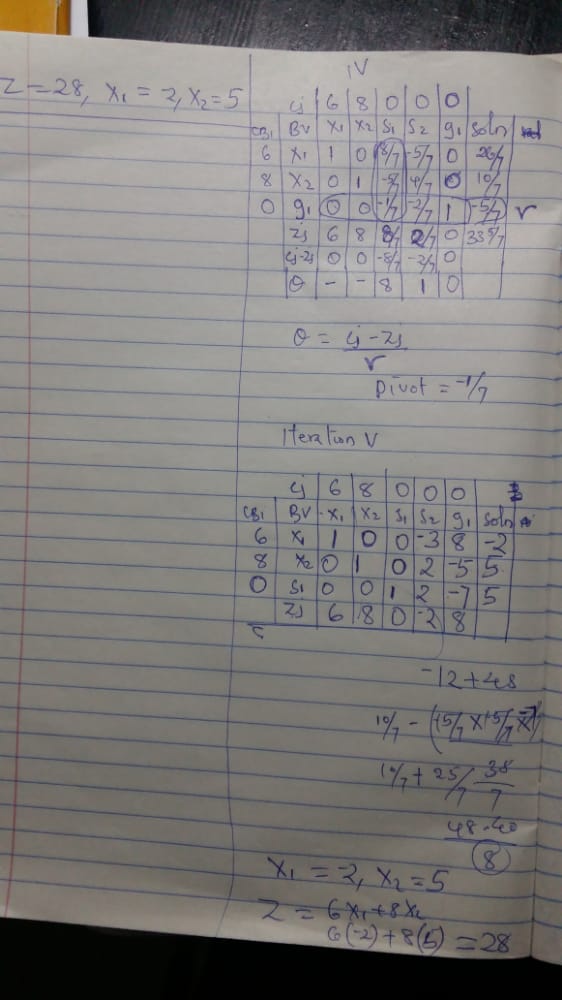 IV
Z = 28, x₁ = -2, x₂ = 5
Cj 6 8 0 0 0
CB₁ BV x₁ x₂ s₁ s₂ g₁ soln
6 x₁ 1 0 8/7 -5/7 0 26/7
8 x₂ 0 1 -5/7 4/7 0 10/7
0 g₁ 0 0 -1/7 -2/7 1 -5/7 r
Zj 6 8 8/7 2/7 0 33 5/7
Cj-Zj 0 0 -8/7 -2/7 0
θ - - 8 1 0
θ = Cj - Zj
r
Pivot = -1/7
Iteration V
Cj 6 8 0 0 0
CB₁ BV x₁ x₂ s₁ s₂ g₁ soln
6 x₁ 1 0 0 -3 8 -2
8 x₂ 0 1 0 2 -5 5
0 s₁ 0 0 1 2 -7 5
Zj 6 8 0 -2 8
-12+48
10/7 -
10/7 + 25/7 38/7
48-40
8
x₁ = -2, x₂ = 5
Z = 6x₁+8x₂
6(-2) + 8(5) = 28